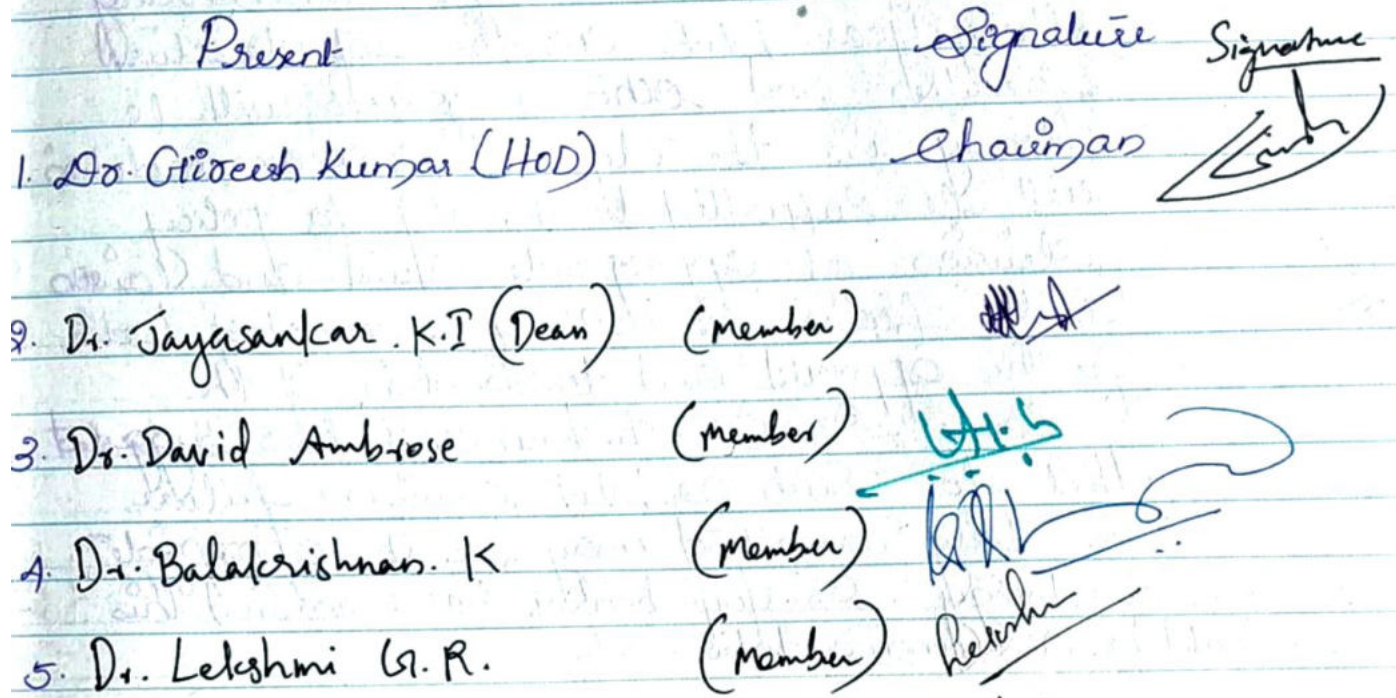 Present Signature Signature
1. Dr. Gireesh Kumar (HOD) Chairman
2. Dr. Jayasankar . K.I (Dean) (Member)
3. Dr. David Ambrose (Member)
4. Dr. Balakrishnan. K (Member)
5. Dr. Lekshmi G.R. (Member) Lekshmi